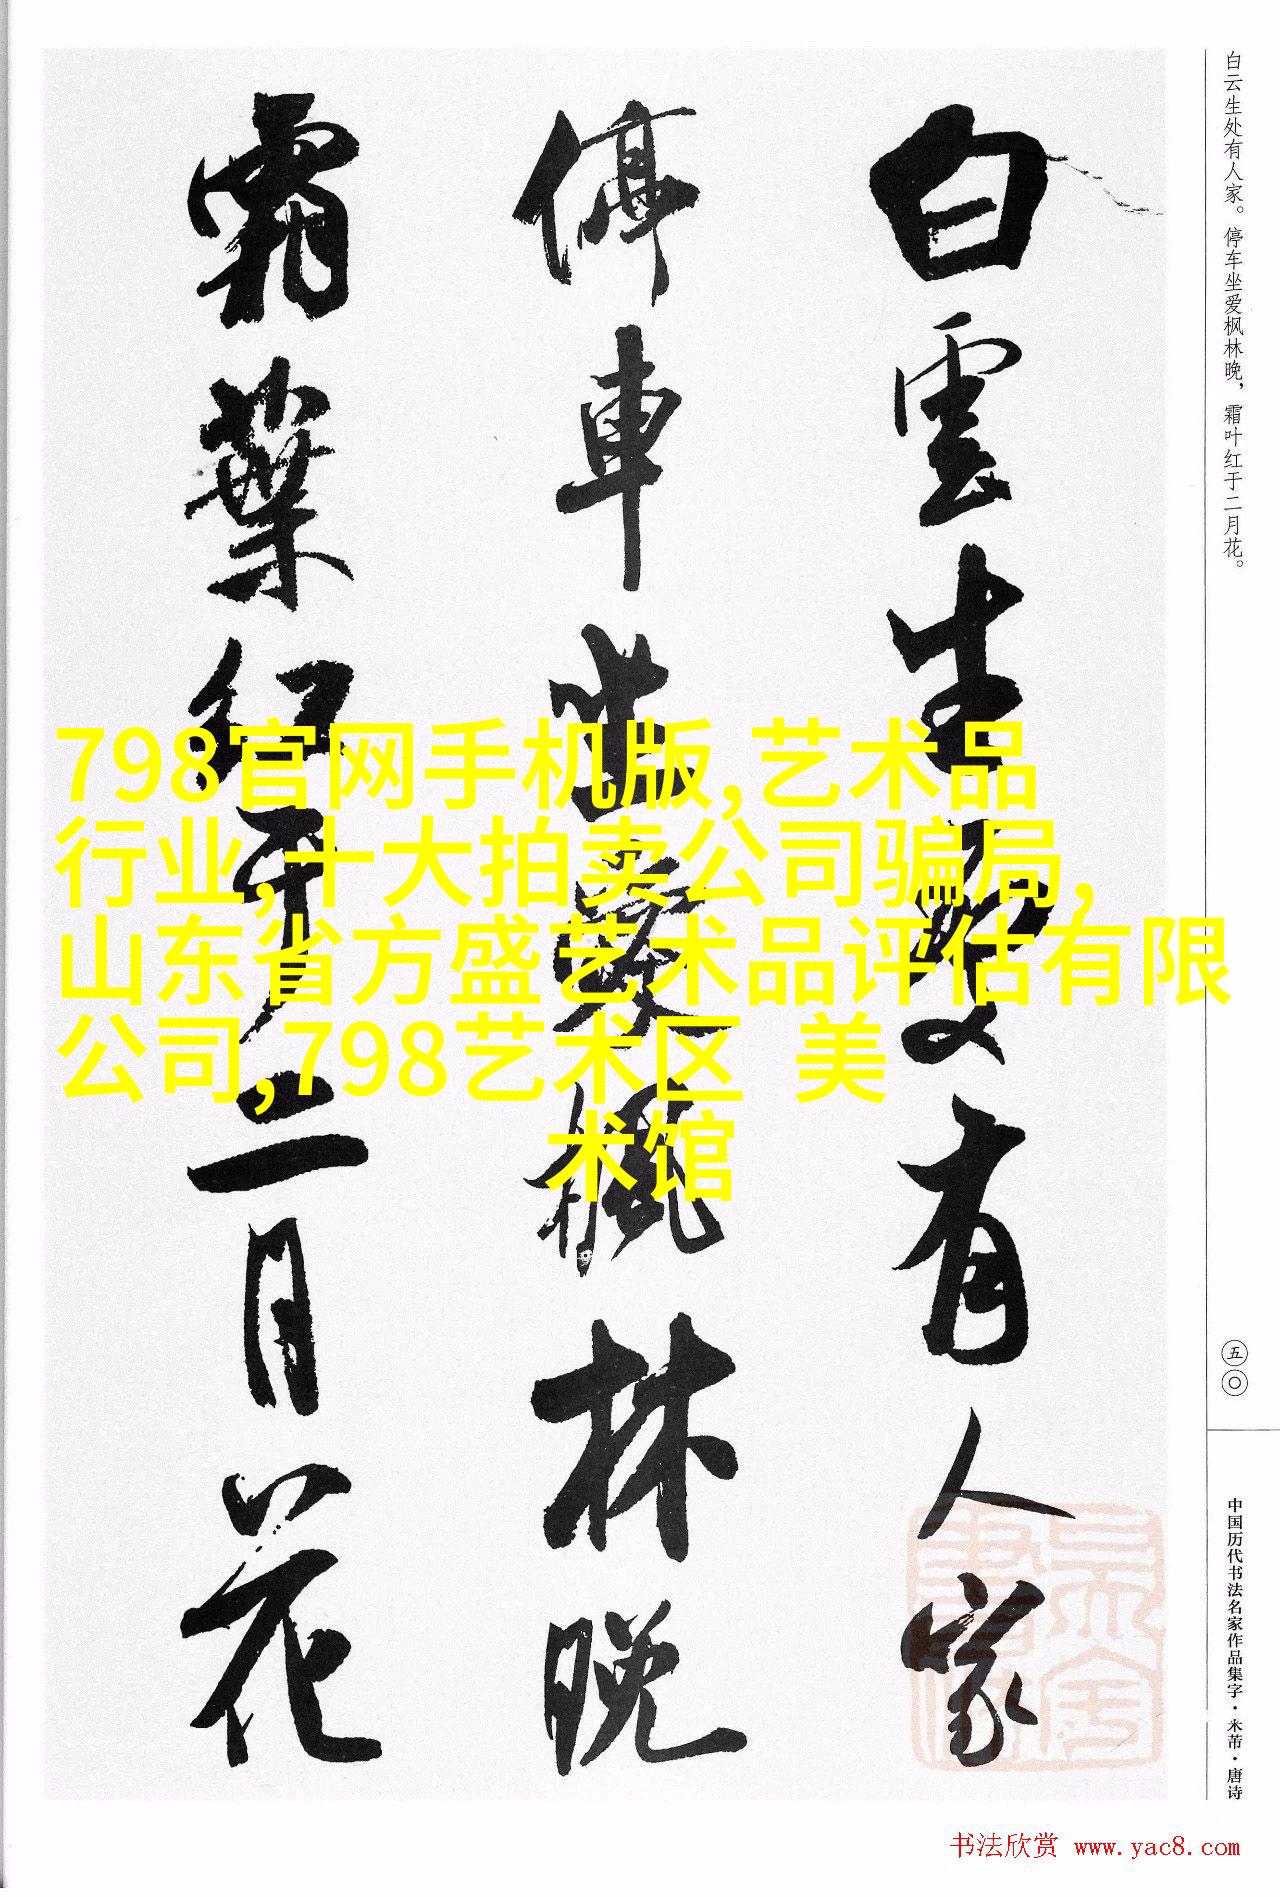 白雲生處有人家
停車坐愛楓林晚
霜葉紅于二月花
白云生处有人家。停车坐爱枫林晚，霜叶红于二月花。
五〇
中国历代书法名家作品集字·米芾·唐诗
798官网手机版,艺术品
行业,十大拍卖公司骗局,
山东省方盛艺术品评估有限
公司,798艺术区 美
术馆
书法欣赏 www.yac8.com